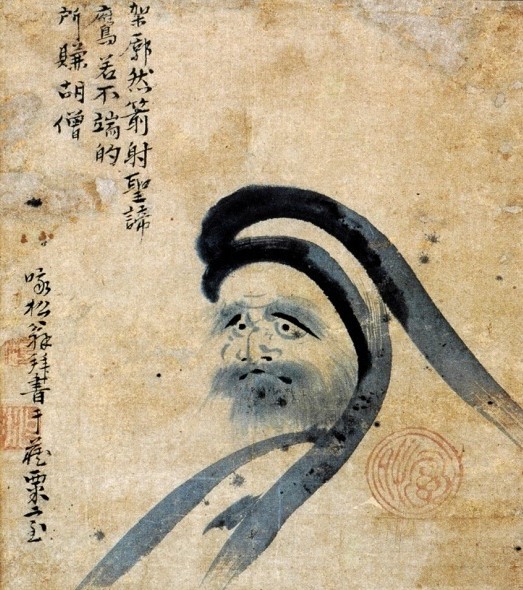 架廓然箭射聖諦
鷹若不端的
所賺胡僧
啄松翁拜書于藏粟室